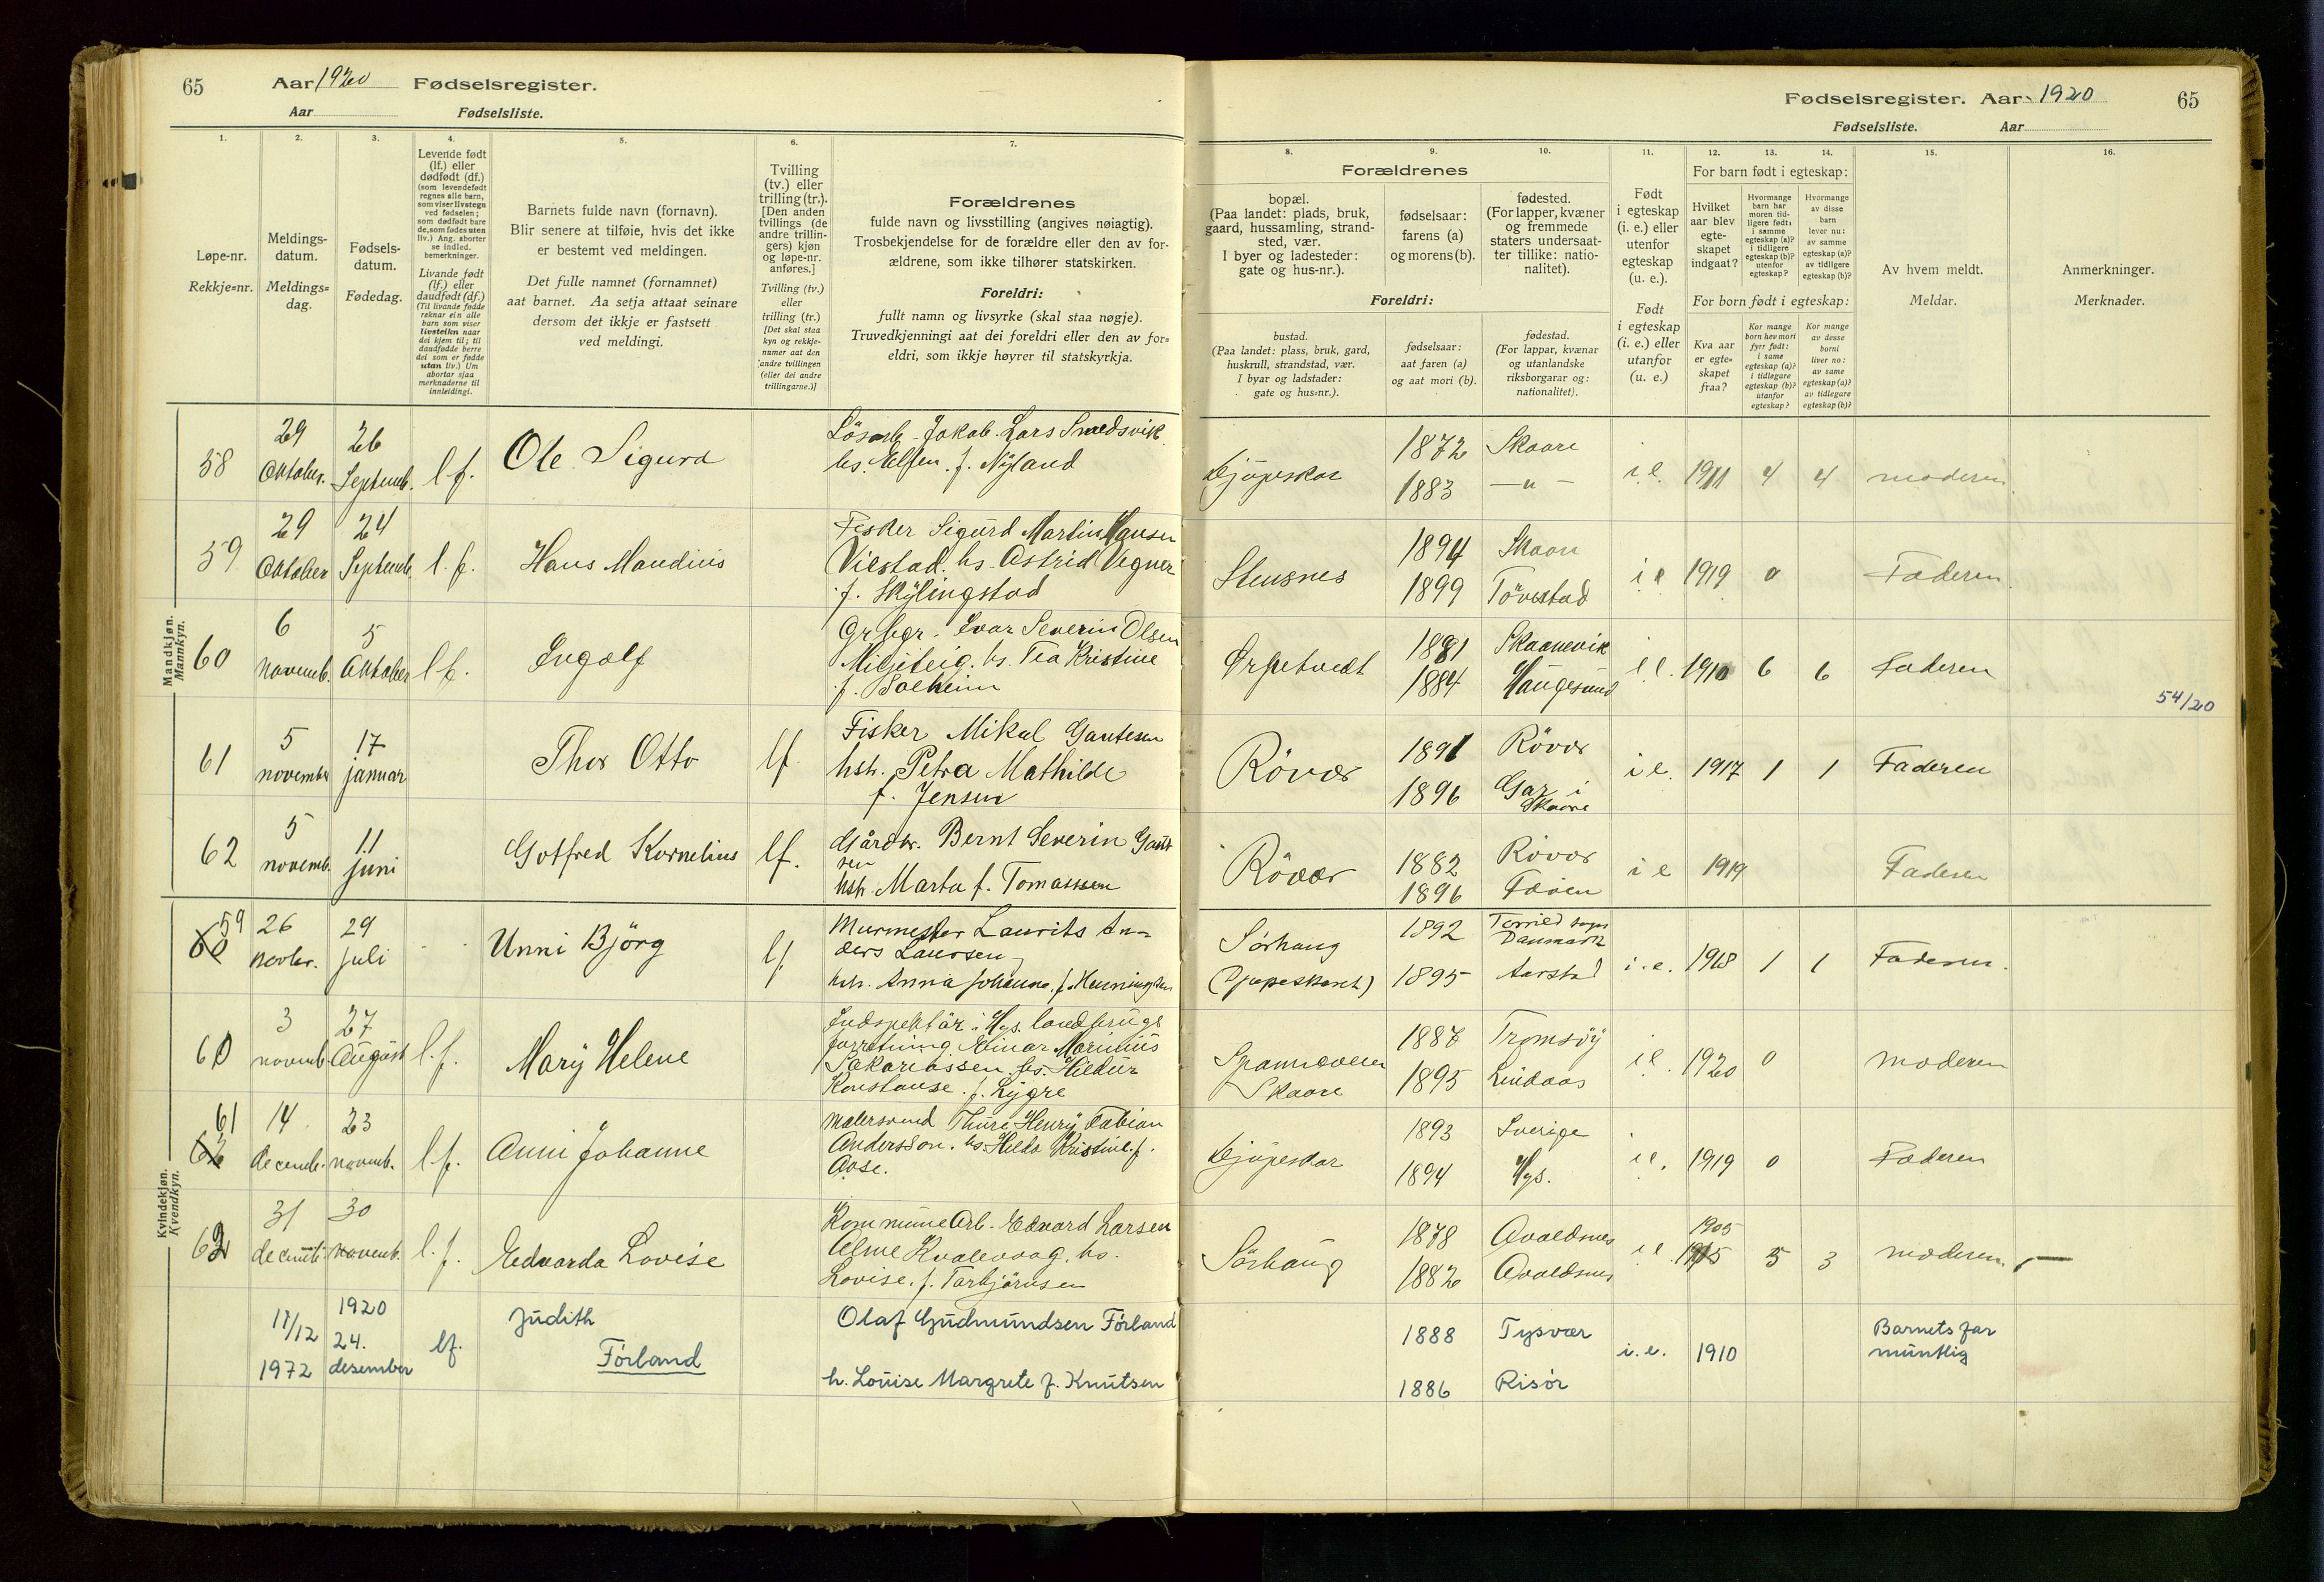 65 Aar 1920 Fødselsregister.
Aar Fødselsliste.
1. 2. 3. 4. 5. 6. 7.
Løpe-nr.
Rekkje=nr.
Meldings-
datum.
Meldings=
dag.
Fødsels-
datum.
Fødedag.
Levende født
(lf.) eller
dødfødt (df.)
(som levendefødt
regnes alle barn,
som viser livstegn
ved fødselen;
som dødfødt bare
de, som fødes uten
liv.) Ang. aborter
se indled.
bemerkninger.
Livande født
(lf.) eller
daudfødt (df.)
(Til livande fødde
reknar ein alle
barn som viser
livsteikn naar
dei kjem til; til
daudfødde berre
dei som er fødde
utan liv.) Um
abortar sjaa
merknaderne til
innleidingi.
Barnets fulde navn (fornavn).
Blir senere at tilføie, hvis det ikke
er bestemt ved meldingen.
Det fulle namnet (fornamnet)
aat barnet. Aa setja attaat seinare
dersom det ikkje er fastsett
ved meldingi.
Tvilling
(tv.) eller
trilling (tr.).
[Den anden
tvillings (de
andre trillin-
gers) kjøn
og løpe-nr.
anføres.]
Tvilling (tv.)
eller
trilling (tr.)
[Det skal staa
kyn og rekkje-
numer aat den
andre tvillingen
(eller dei andre
trillingarne.)]
Forældrenes
fulde navn og livsstilling (angives nøiagtig).
Trosbekjendelse for de forældre eller den av for-
ældrene, som ikke tilhører statskirken.
Foreldri:
fullt namn og livsyrke (skal staa nøgje).
Truvedkjenningi aat dei foreldri eller den av for=
eldri, som ikkje høyrer til statskyrkja.
Mandkjøn.
Mannkyn.
58 29 Oktober. 26 Septemb. l.f. Ole Sigurd
Jakob Lars Snedsvik
hs. f. Nyland
59 29 Oktober 24 Septemb. l.f. Hans Mandius
Fisker Sigurd Martin Hansen
Vikstad. hs. Astrid Vegner
f. Skylingstad
60 6 novemb. 5 Oktober l.f. Ingolf
Grbgr. Ivar Severin Olsen
Miljeteig. hs. Tea Kristine
f. Solheim
61 5 november 17 januar Thor Otto lf.
Fisker Mikal Gautesen
hstr. Petra Mathilde
f. Jensen
62 5 novemb. 11 juni Gotfred Kornelius lf.
Gårdbr. Bernt Severin Gaut
sen
hstr. Marta f. Tomassen
Kvindekjøn.
Kvendkyn.
59 60 26 novbr. 29 juli Unni Bjørg lf.
Murmester Laurits An=
ders Laursen
hstr. Anna Johanne f. Henningsen
60 3 novemb. 27 August l.f. Mary Helene
Indspektör i Hgs. landbrugs
forretning Einar Marinius
Sakariassen. hs. Hildur
Konstanse. f. Lygre
61 62 14 decemb. 23 novemb. l.f. Anni Johanne
Malersvend Thure Henry Fabian
Andersson. hs. Hilda Kristine f.
Aase.
62 31 decemb. 30 novemb. l.f. Edvarda Lovise
Kommune Arb. Edvard Larsen
Alme Kvalevaag. hs.
Lovise. f. Torbjørnsen
17/12 1972 1920 24. desember lf. Judith
Førland
Olaf Gudmundsen Førland
h. Louise Margrete f. Knutsen
Fødselsregister. Aar 1920 65
Fødselsliste. Aar
8. 9. 10. 11. 12. 13. 14. 15. 16.
Forældrenes
bopæl.
(Paa landet: plads, bruk,
gaard, hussamling, strand-
sted, vær.
I byer og ladesteder:
gate og hus-nr.).
fødselsaar:
farens (a)
og morens (b).
fødested.
(For lapper, kvæner
og fremmede
staters undersaat-
ter tillike: natio-
nalitet).
Foreldri:
bustad.
(Paa landet: plass, bruk, gard,
huskrull, strandstad, vær.
I byar og ladstader:
gate og hus=nr.).
fødselsaar:
aat faren (a)
og aat mori (b).
fødestad.
(For lappar, kvænar
og utanlandske
riksborgarar og:
nationalitet).
Født
i egteskap
(i. e.) eller
utenfor
egteskap
(u. e.).
Født
i egteskap
(i. e.) eller
utanfor
(u. e.)
For barn født i egteskap:
Hvilket
aar blev
egte-
skapet
indgaat?
Hvormange
barn har
moren tid-
ligere født:
i samme
egteskap (a)?
i tidligere
egteskap (b)?
utenfor
egteskap?
Hvormange
av disse
barn
lever nu:
av samme
egteskap (a)?
av tidligere
egteskap (b)?
For born født i egteskap:
Kva aar
er egte=
skapet
fraa?
Kor mange
born hev mori
fyrr født:
i same
egteskap (a)?
i tidlegare
egteskap (b)?
utanfor
egteskap?
Kor mange
av desse
borni
liver no:
av same
egteskap (a)?
av tidlegare
egteskap (b)?
Av hvem meldt.
Meldar.
Anmerkninger.
Merknader.
Djupeskar 1872 1883 Skaare —"— i.e. 1911 4 4 moderen
Stensnes 1894 1899 Skaare Torvestad i.e. 1919 0 Faderen.
Ørpetvedt 1881 1884 Skaanevik Haugesund i.e. 1910 6 6 Faderen
54/20
Rövær 1891 1896 Rövær Gar i Skaare i e. 1917 1 1 Faderen
Rövær 1882 1896 Rövær Føien i e 1919 Faderen
Sørhaug
(Djupeskaret) 1892 1895 Torrild sogn Danmark Aarstad i.e. 1918 1 1 Faderen.
Skaare 1887 1895 Tromsøy Lindaas i.e. 1920 0 Moderen
Djupeskar 1893 1894 Sverige Hgs. i.e. 1919 0 Faderen
Sörhaug 1878 1882 Avaldsnes Avaldsnes i.e. 1905 1915 5 3 moderen. —
1888 1886 Tysvær Risør i.e. 1910 Barnets far
muntlig